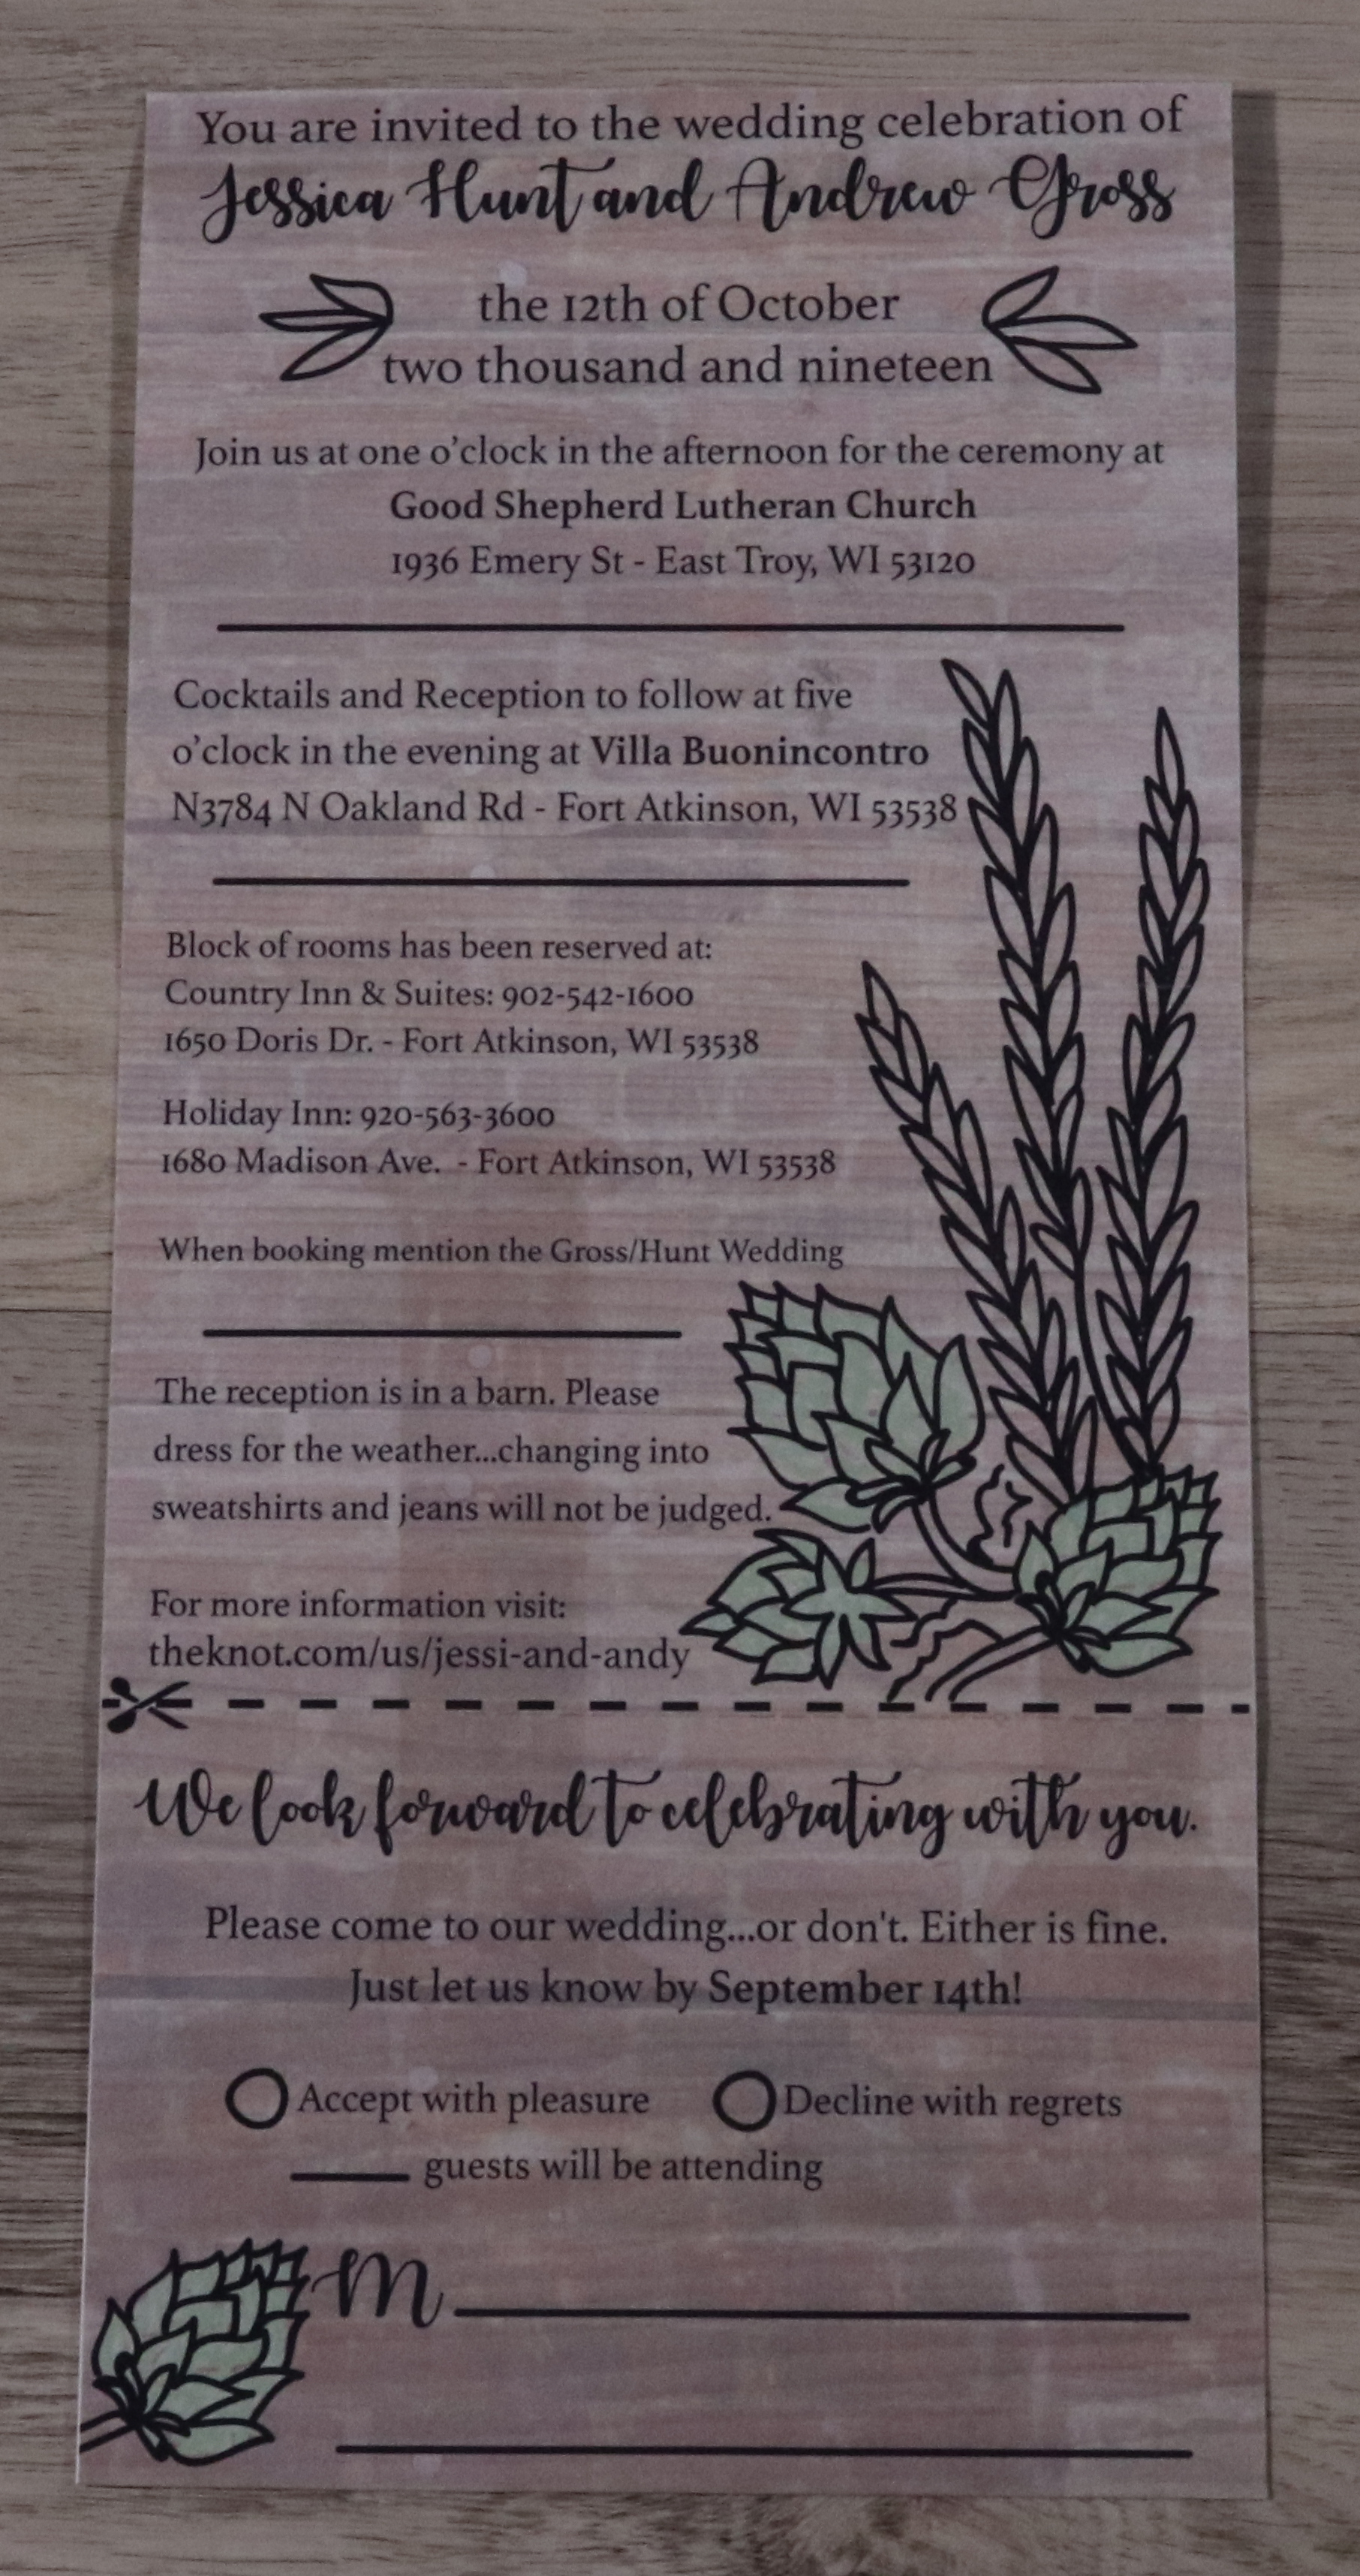 You are invited to the wedding celebration of
Jessica Hunt and Andrew Gross
the 12th of October
two thousand and nineteen
Join us at one o'clock in the afternoon for the ceremony at
Good Shepherd Lutheran Church
1936 Emery St - East Troy, WI 53120
Cocktails and Reception to follow at five
o'clock in the evening at Villa Buonincontro
N3784 N Oakland Rd - Fort Atkinson, WI 53538
Block of rooms has been reserved at:
Country Inn & Suites: 902-542-1600
1650 Doris Dr. - Fort Atkinson, WI 53538
Holiday Inn: 920-563-3600
1680 Madison Ave. - Fort Atkinson, WI 53538
When booking mention the Gross/Hunt Wedding
The reception is in a barn. Please
dress for the weather...changing into
sweatshirts and jeans will not be judged.
For more information visit:
theknot.com/us/jessi-and-andy
We look forward to celebrating with you.
Please come to our wedding...or don't. Either is fine.
Just let us know by September 14th!
Accept with pleasure Decline with regrets
____ guests will be attending
M